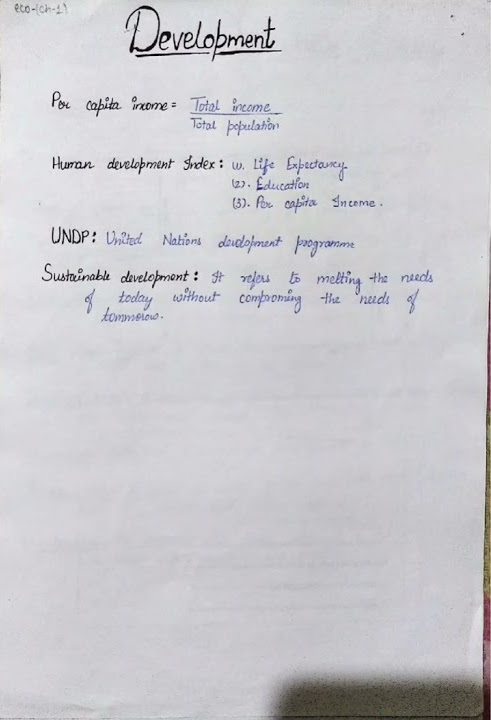 eco-(ch-1)
Development
Per capita income = Total income
Total population
Human development Index : (1). Life Expectancy
(2). Education
(3). Per capita Income.
UNDP : United Nations development programme
Sustainable development : It refers to melting the needs
of today without comproming the needs of
tommorow.